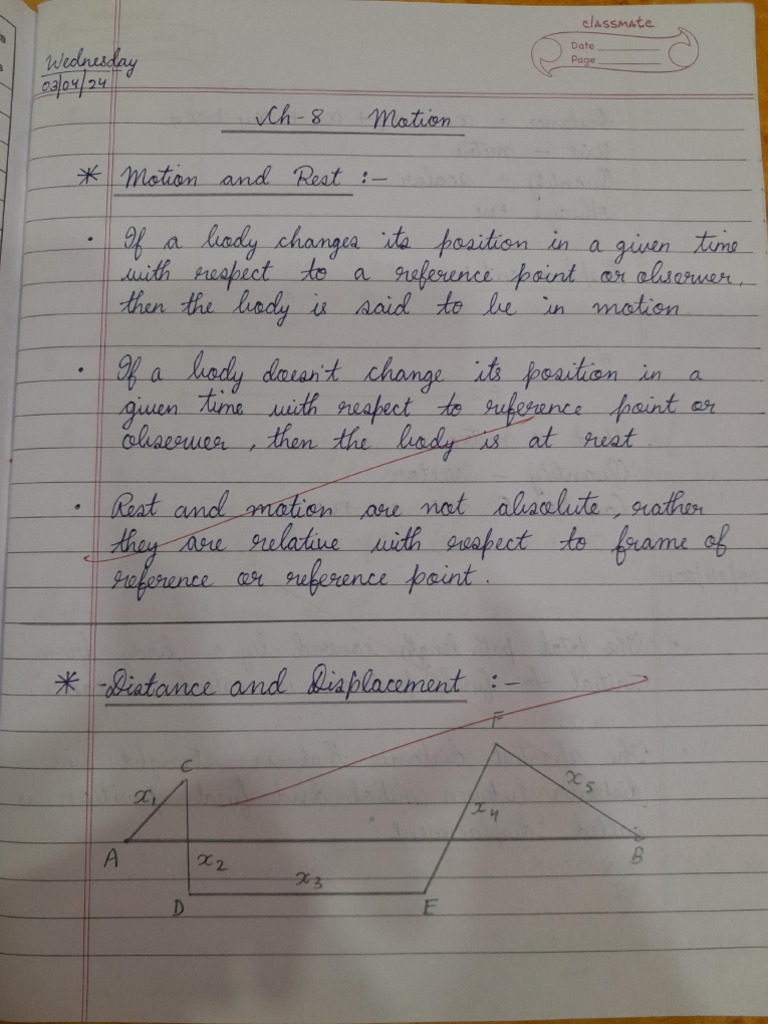 classmate
Date
Page
Wednesday
03/04/24
Ch-8 Motion
* Motion and Rest :-
• If a body changes its position in a given time
with respect to a reference point or observer,
then the body is said to be in motion
• If a body doesn't change its position in a
given time with respect to reference point or
observer, then the body is at rest.
• Rest and motion are not absolute, rather
they are relative with respect to frame of
reference or reference point.
* Distance and Displacement :-
F
C
x1
x5
x4
A
x2
B
x3
D
E